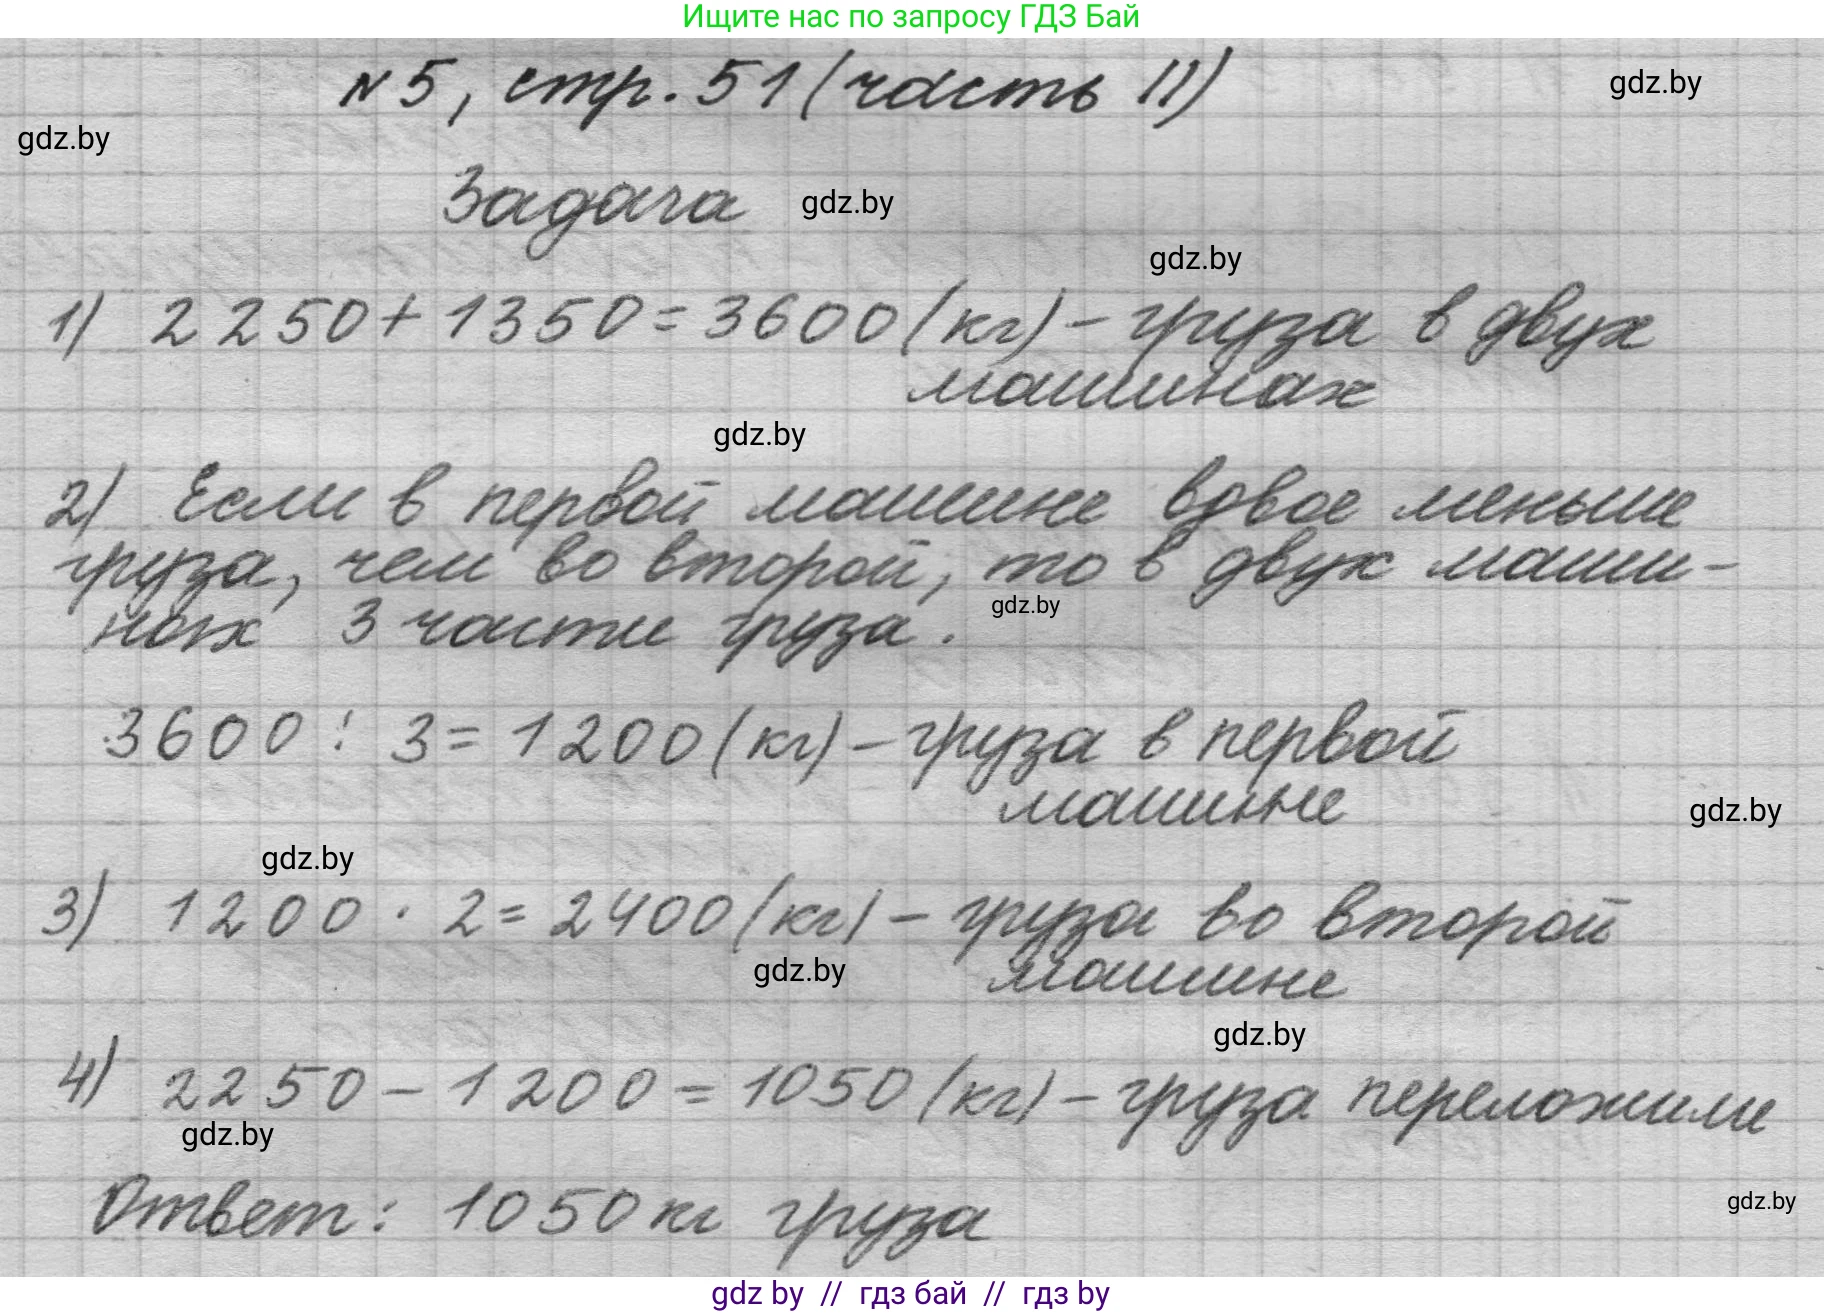 Ищите нас по запросу ГДЗ Бай
№5, стр. 51 (часть II)
gdz.by
gdz.by
Задача
gdz.by
gdz.by
1) 2250 + 1350 = 3600 (кг) – груза в двух
машинах
gdz.by
2) Если в первой машине вдвое меньше
груза, чем во второй, то в двух маши-
нах 3 части груза.
gdz.by
3600 : 3 = 1200 (кг) – груза в первой
машине
gdz.by
gdz.by
3) 1200 · 2 = 2400 (кг) – груза во второй
машине
gdz.by
gdz.by
4) 2250 – 1200 = 1050 (кг) – груза переложили
gdz.by
Ответ: 1050 кг груза
gdz.by
gdz by // гдз бай // гдз by